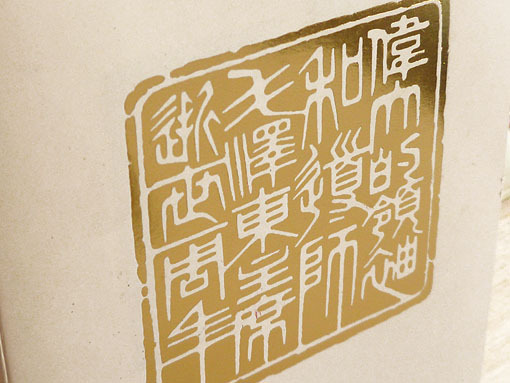 偉大的領袖
和導師
毛澤東主席
逝世周年